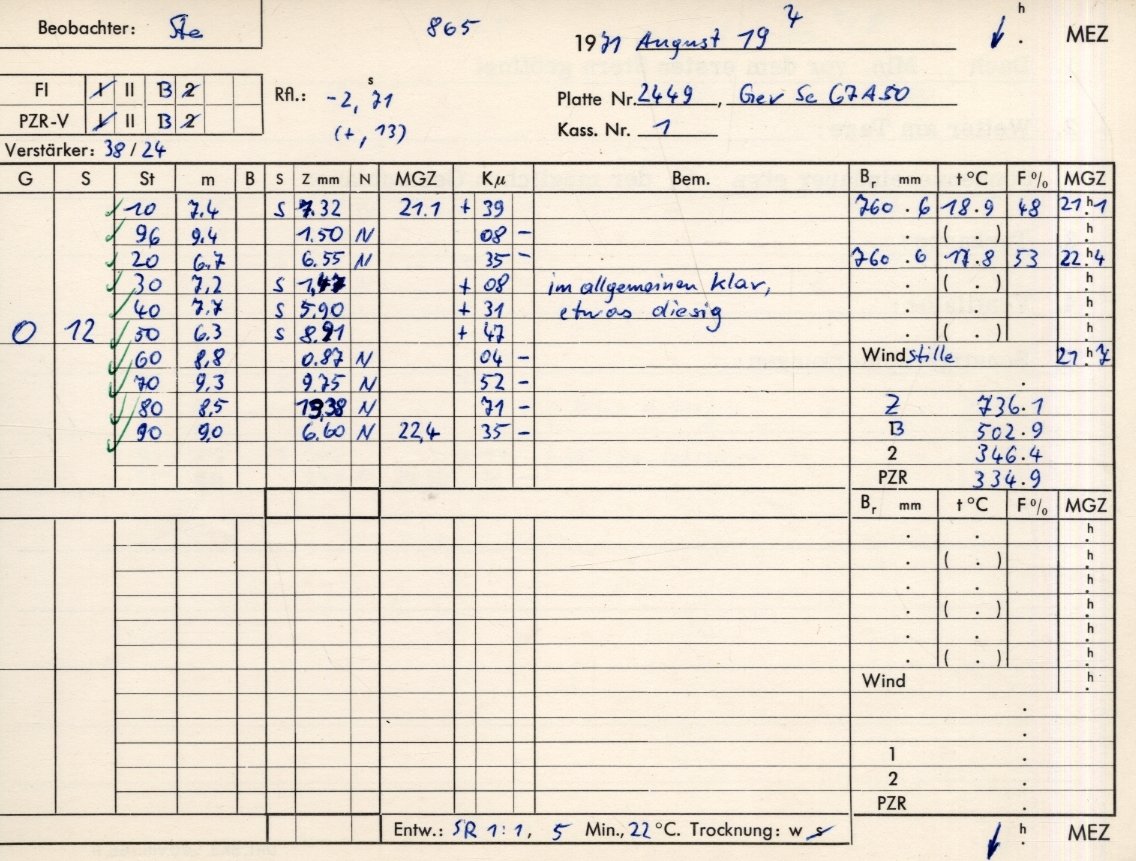 Beobachter: Ste
865
1971 August 19 4 h . MEZ
FI I II B 2
PZR-V I II B 2
Rfl.: -2,71 s
(+,13)
Platte Nr. 2449, Gev Sc 67A50
Kass. Nr. 1
Verstärker: 38/24
G S St m B S Z mm N MGZ Kμ Bem. Br mm t °C F % MGZ
10 7.4 S 7.32 21.1 + 39 760.6 18.9 48 21h.1
96 9.4 1.50 N 08 - . ( . ) h.
20 6.7 6.55 N 35 - 760.6 17.8 53 22h.4
30 7,2 S 1,47 + 08 im allgemeinen klar, . ( . ) h.
40 7.7 S 5.90 + 31 etwas diesig . . h.
0 12 50 6.3 S 8.91 + 47 . ( . ) h.
60 8,8 0.87 N 04 - Wind stille 21h.7
70 9,3 9.75 N 52 - .
80 8,5 13,38 N 71 - Z 736.1
90 9,0 6.60 N 22,4 35 - B 502.9
2 346.4
PZR 334.9
Br mm t °C F % MGZ
. . h.
. ( . ) h.
. . h.
. ( . ) h.
. . h.
. ( . ) h.
Wind h.
.
.
1 .
2 .
PZR .
Entw.: SR 1:1, 5 Min., 22 °C. Trocknung: w s h . MEZ